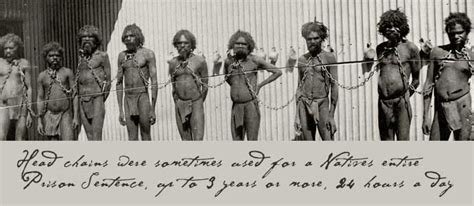 Head chains were sometimes used for a Natives entire
Prison Sentence, up to 3 years or more, 24 hours a day